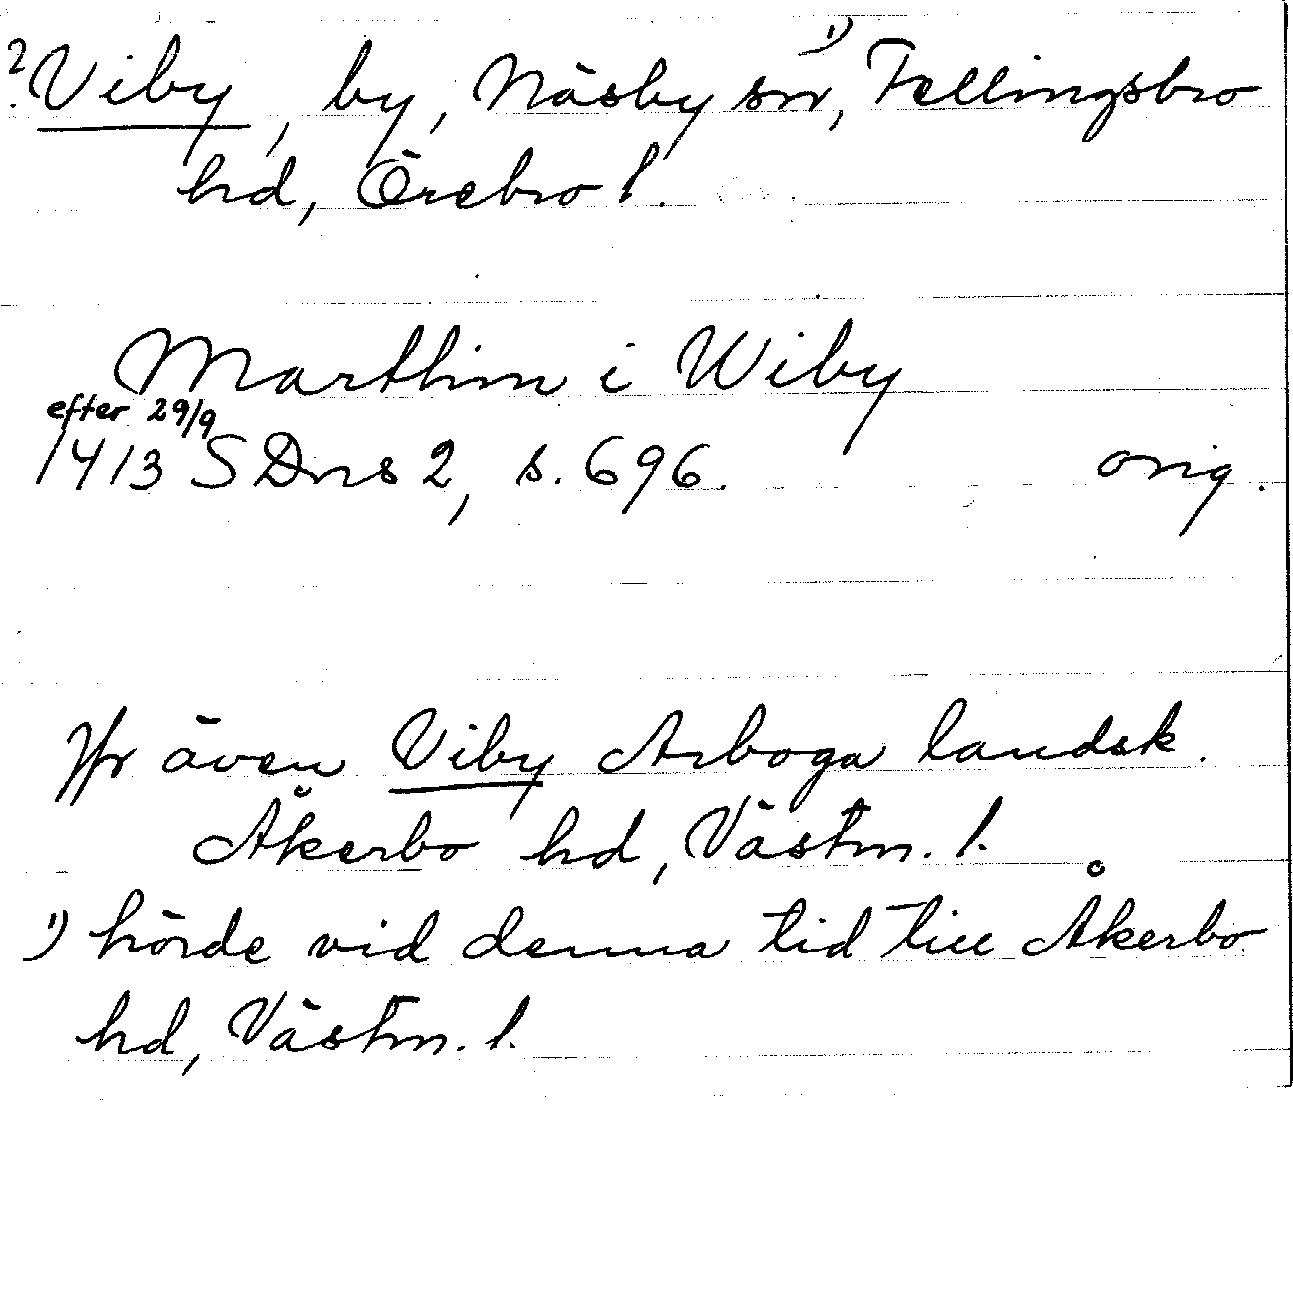 ? Viby, by, Näsby sn, ¹⁾ Fellingsbro
hd, Örebro l.
Marthin i Wiby
efter 29/9
1413 SDns 2, s. 696. orig.
Jfr även Viby Arboga landsk.
Åkerbo hd, Västm. l.
¹⁾ hörde vid denna tid till Åkerbo
hd, Västm. l.